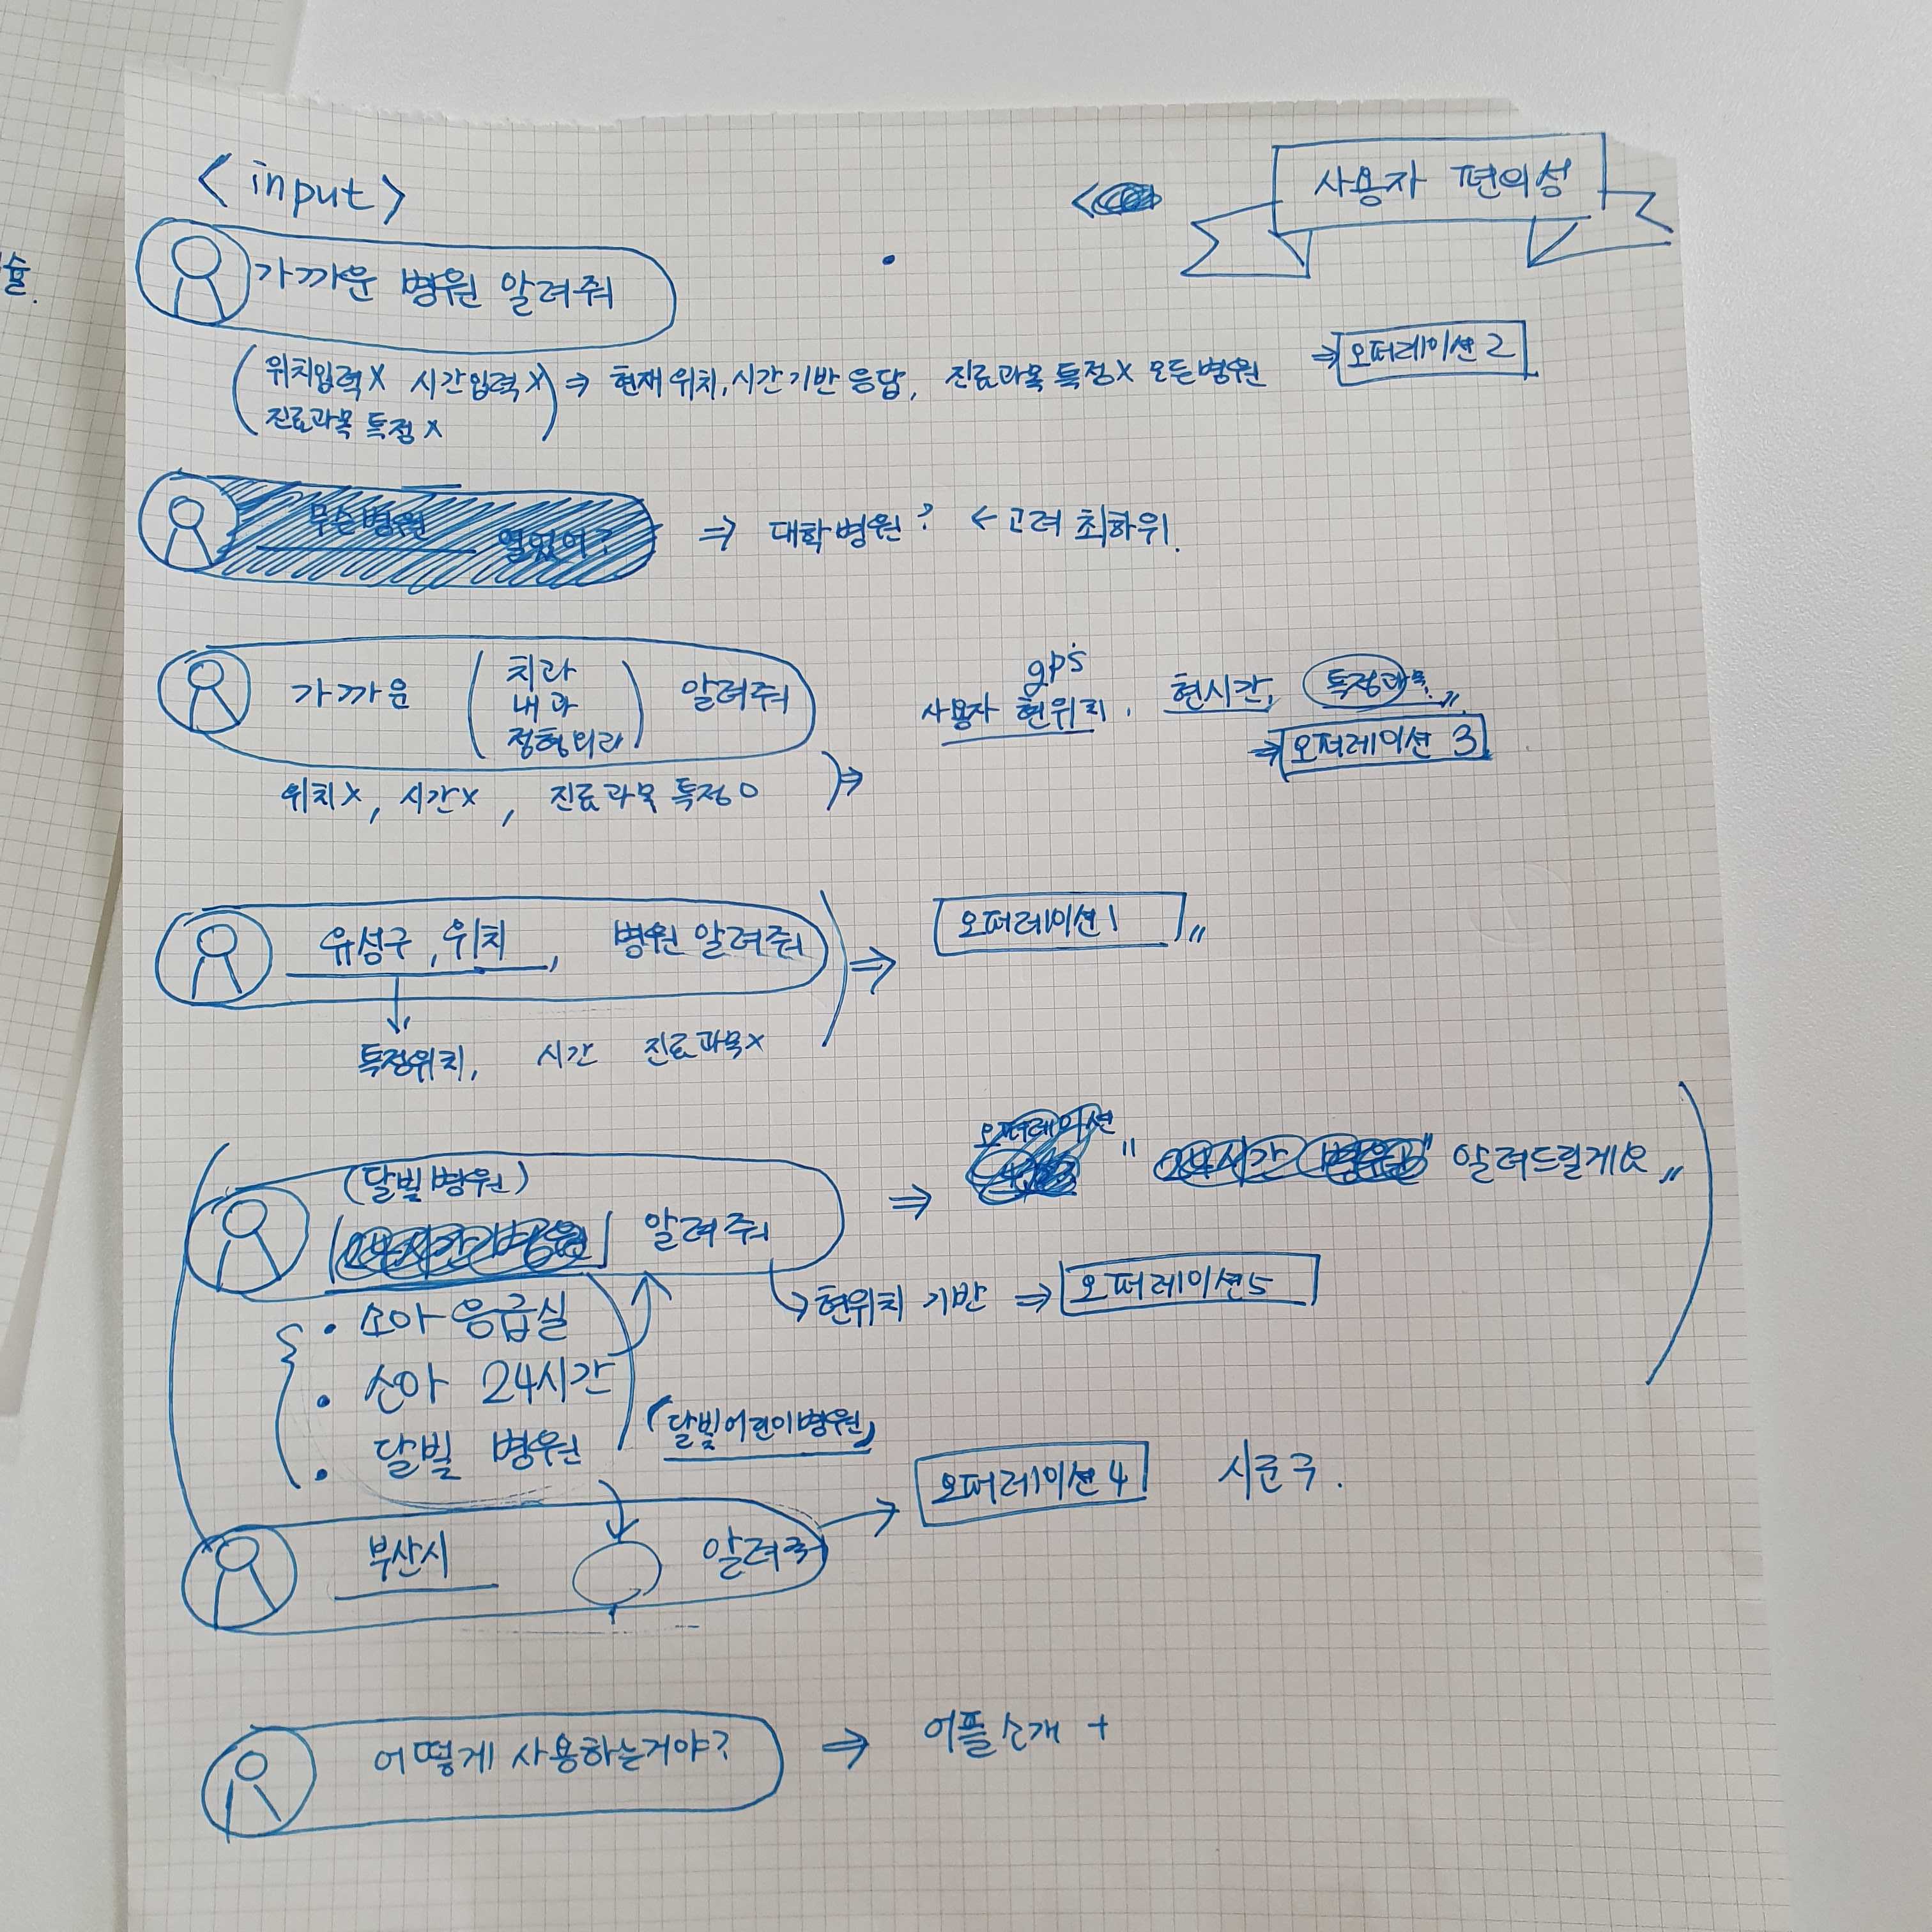 <input>
사용자 편의성
가까운 병원 알려줘
(위치입력X 시간입력X) ⇒ 현재 위치, 시간 기반 응답, 진료과목 특정X 모든병원 ⇒ 오퍼레이션 2
진료과목 특정 X
무슨병원 열었어? ⇒ 대학병원? ← 고려 최하위.
가까운 (치과 내과 정형외과) 알려줘
gps
사용자 현위치, 현시간, 특정과목"
⇒ 오퍼레이션 3
위치X, 시간X, 진료과목 특정O ⇒
유성구, 위치, 병원 알려줘 ⇒ 오퍼레이션 1"
특정위치, 시간 진료과목X
오퍼레이션
(달빛병원)
알려줘 ⇒ " 24시간 병원" 알려드릴게요"
현위치 기반 ⇒ 오퍼레이션5
· 소아 응급실
· 소아 24시간
· 달빛 병원
(달빛어린이병원)
오퍼레이션 4 시군구.
부산시 알려줘
어떻게 사용하는거야? ⇒ 어플소개 +